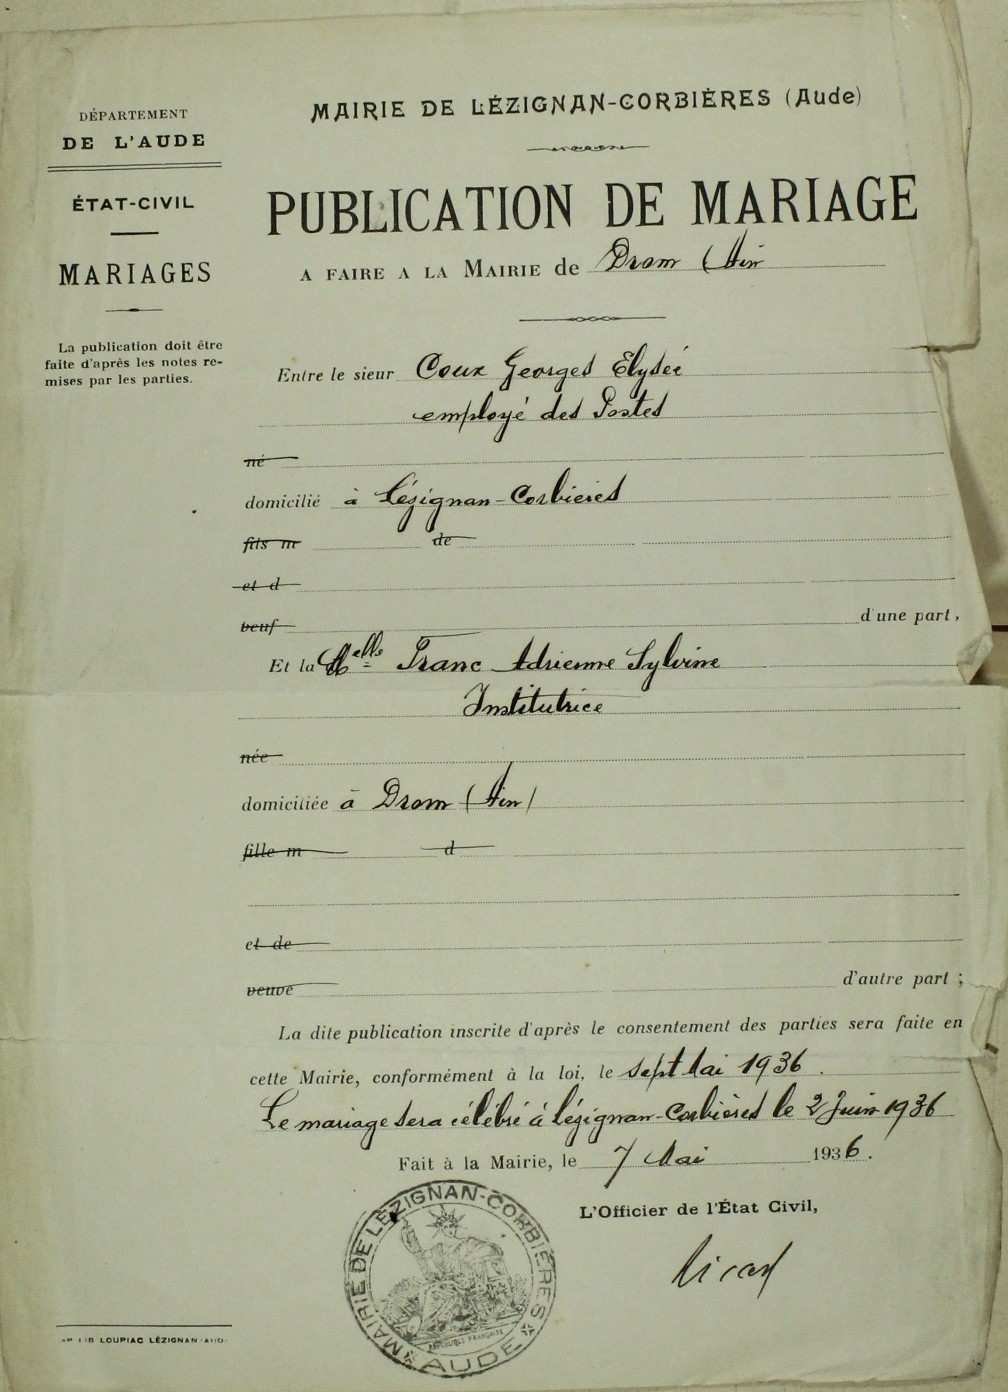 DÉPARTEMENT
DE L'AUDE
ÉTAT-CIVIL
MARIAGES
La publication doit être
faite d'après les notes re-
mises par les parties.
MAIRIE DE LÉZIGNAN-CORBIÈRES (Aude)
PUBLICATION DE MARIAGE
A FAIRE A LA MAIRIE de Drom (Ain
Entre le sieur Coux Georges Elysée
employé des Postes
né
domicilié à Lézignan-Corbières
fils m de
et d
veuf d'une part,
Et la Melle Franc Adrienne Sylvine
Institutrice
née
domiciliée à Drom (Ain)
fille m d
et de
veuve d'autre part ;
La dite publication inscrite d'après le consentement des parties sera faite en
cette Mairie, conformément à la loi, le sept Mai 1936.
Le mariage sera célébré à Lézignan-Corbières le 2 Juin 1936
Fait à la Mairie, le 7 Mai 1936.
L'Officier de l'État Civil,
MAIRIE DE LÉZIGNAN-CORBIÈRES
RÉPUBLIQUE FRANÇAISE
AUDE
LOUPIAC LÉZIGNAN (AUDE)